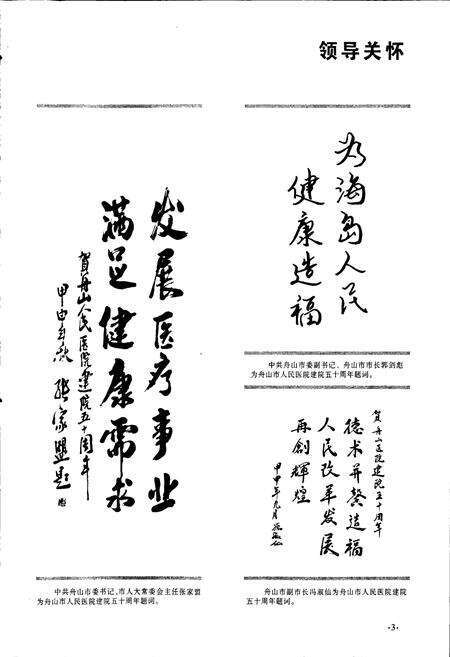 领导关怀
发展医疗事业
满足健康需求
贺舟山人民医院建院五十周年
甲申年秋 张家盟题
中共舟山市委书记、市人大常委会主任张家盟
为舟山市人民医院建院五十周年题词。
为海岛人民
健康造福
中共舟山市委副书记、舟山市市长郭剑彪
为舟山市人民医院建院五十周年题词。
贺舟山医院建院五十周年
德术并馨造福
人民改革发展
再创辉煌
甲申年九月 冯淑仙
舟山市副市长冯淑仙为舟山市人民医院建院
五十周年题词。
·3·